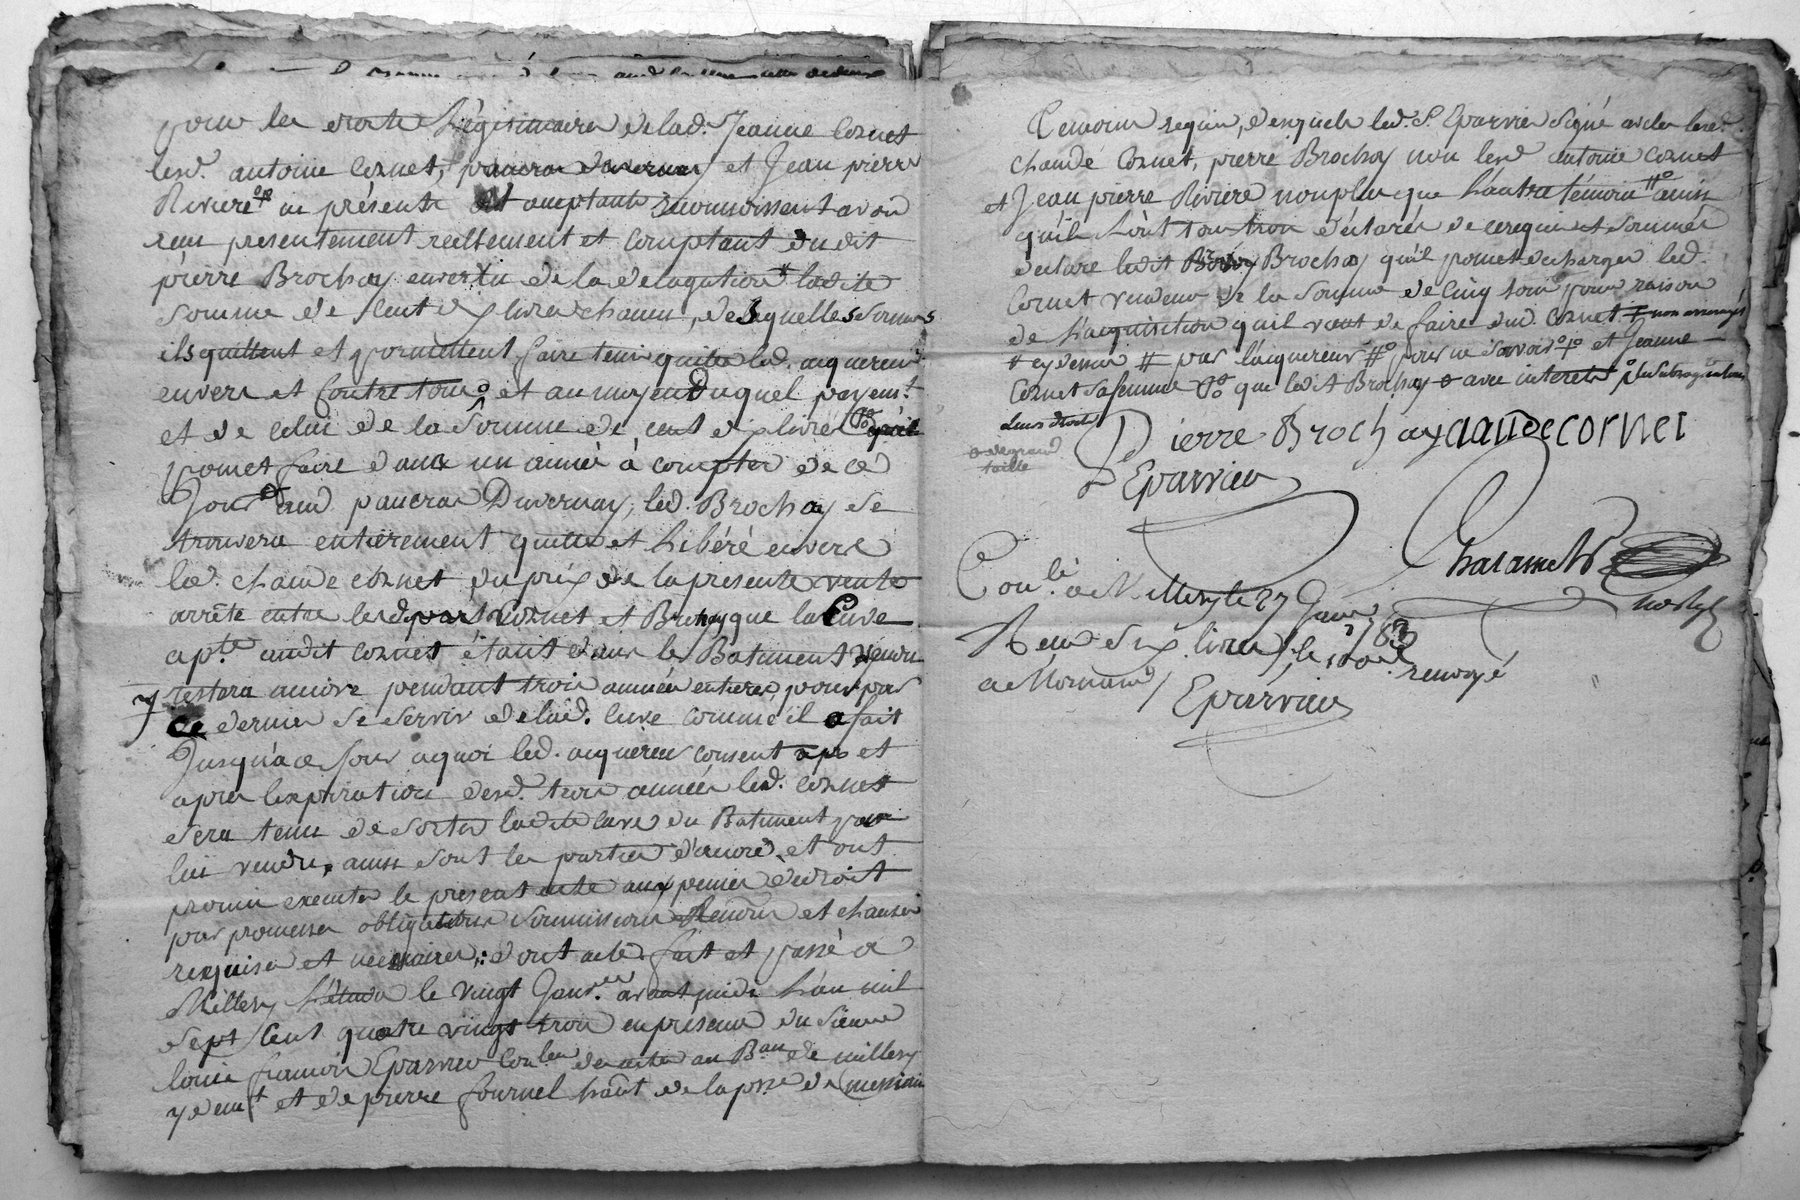 pour les droits Légitimaires de lad. Jeanne Cornet
lesd. antoine Cornet, pancras duvernay et Jean pierre
Riviere ici présents et acceptants reconnoissent avoir
reçu presentement reellement et comptant dudit
pierre Brochay en vertu de la delegation # ladite
somme de Cent dix livres chacun, desquelles sommes
ils quittent et promettent faire tenir quitte led. acquereur
envers et Contre tous et au moyen duquel payemt.
et de celui de la Somme de cent dix livres qu'il
promet faire dans un année à compter de ce
Jour aud. pancras Duvernay, led. Brochay se
trouvera entierement quitte et Libéré envers
led. chaude Cornet du prix de la presente vente
arrêté entre lesd. parts Cornet et Brochay que la Cuve
apte. audit Cornet étant dans le Batiment vendu
restera encore pendant trois années entieres pour par
ce dernier se servir de lad. Cuve comme il a fait
Jusqu'a ce Jour a quoi led. acquereur consent et
après l'expiration desd. trois années led. Cornet
sera tenu de sortir ladite cuve du Batiment par
lui vendu, ainsi sont les parties d'accord, et ont
promis executer le present acte aux peines de droit
par promesses obligations soumissions Renon et clauses
requises et necessaires: dont acte fait et passé a
Millery L'étude le vingt Janv.er avant midi L'an mil
sept Cent quatre vingt trois en présence du Sieur
louis françois Eparvier Con.leur des actes au B.au de millery
y demt. et de pierre fournel habt. de la psse. de messimi
Temoins requis, desquels led. S. Eparvier Signé avec les lesd.
chaude Cornet, pierre Brochay non lesd. antoine Cornet
et Jean pierre Riviere non plus que L'autre témoin ainsi
qu'ils L'ont tous trois déclarés de ce requis et sommés
declare ledit Brochay qu'il promet decharger led.
Cornet vendeur de la somme de Cinq sous pour raison
de L'acquisition qu'il vient de faire dud. Cornet # non arrerages
# cy dessus # par l'acquereur # pour ne savoir et Jeanne
Cornet sa femme que ledit Brochay avec interets
Leurs droits
Pierre Brochay claude cornet
L Eparvier
Con.lé a Millery le 27 Janv. 1783
Reçu dix livres
a Mornand renvoyé
Eparvier